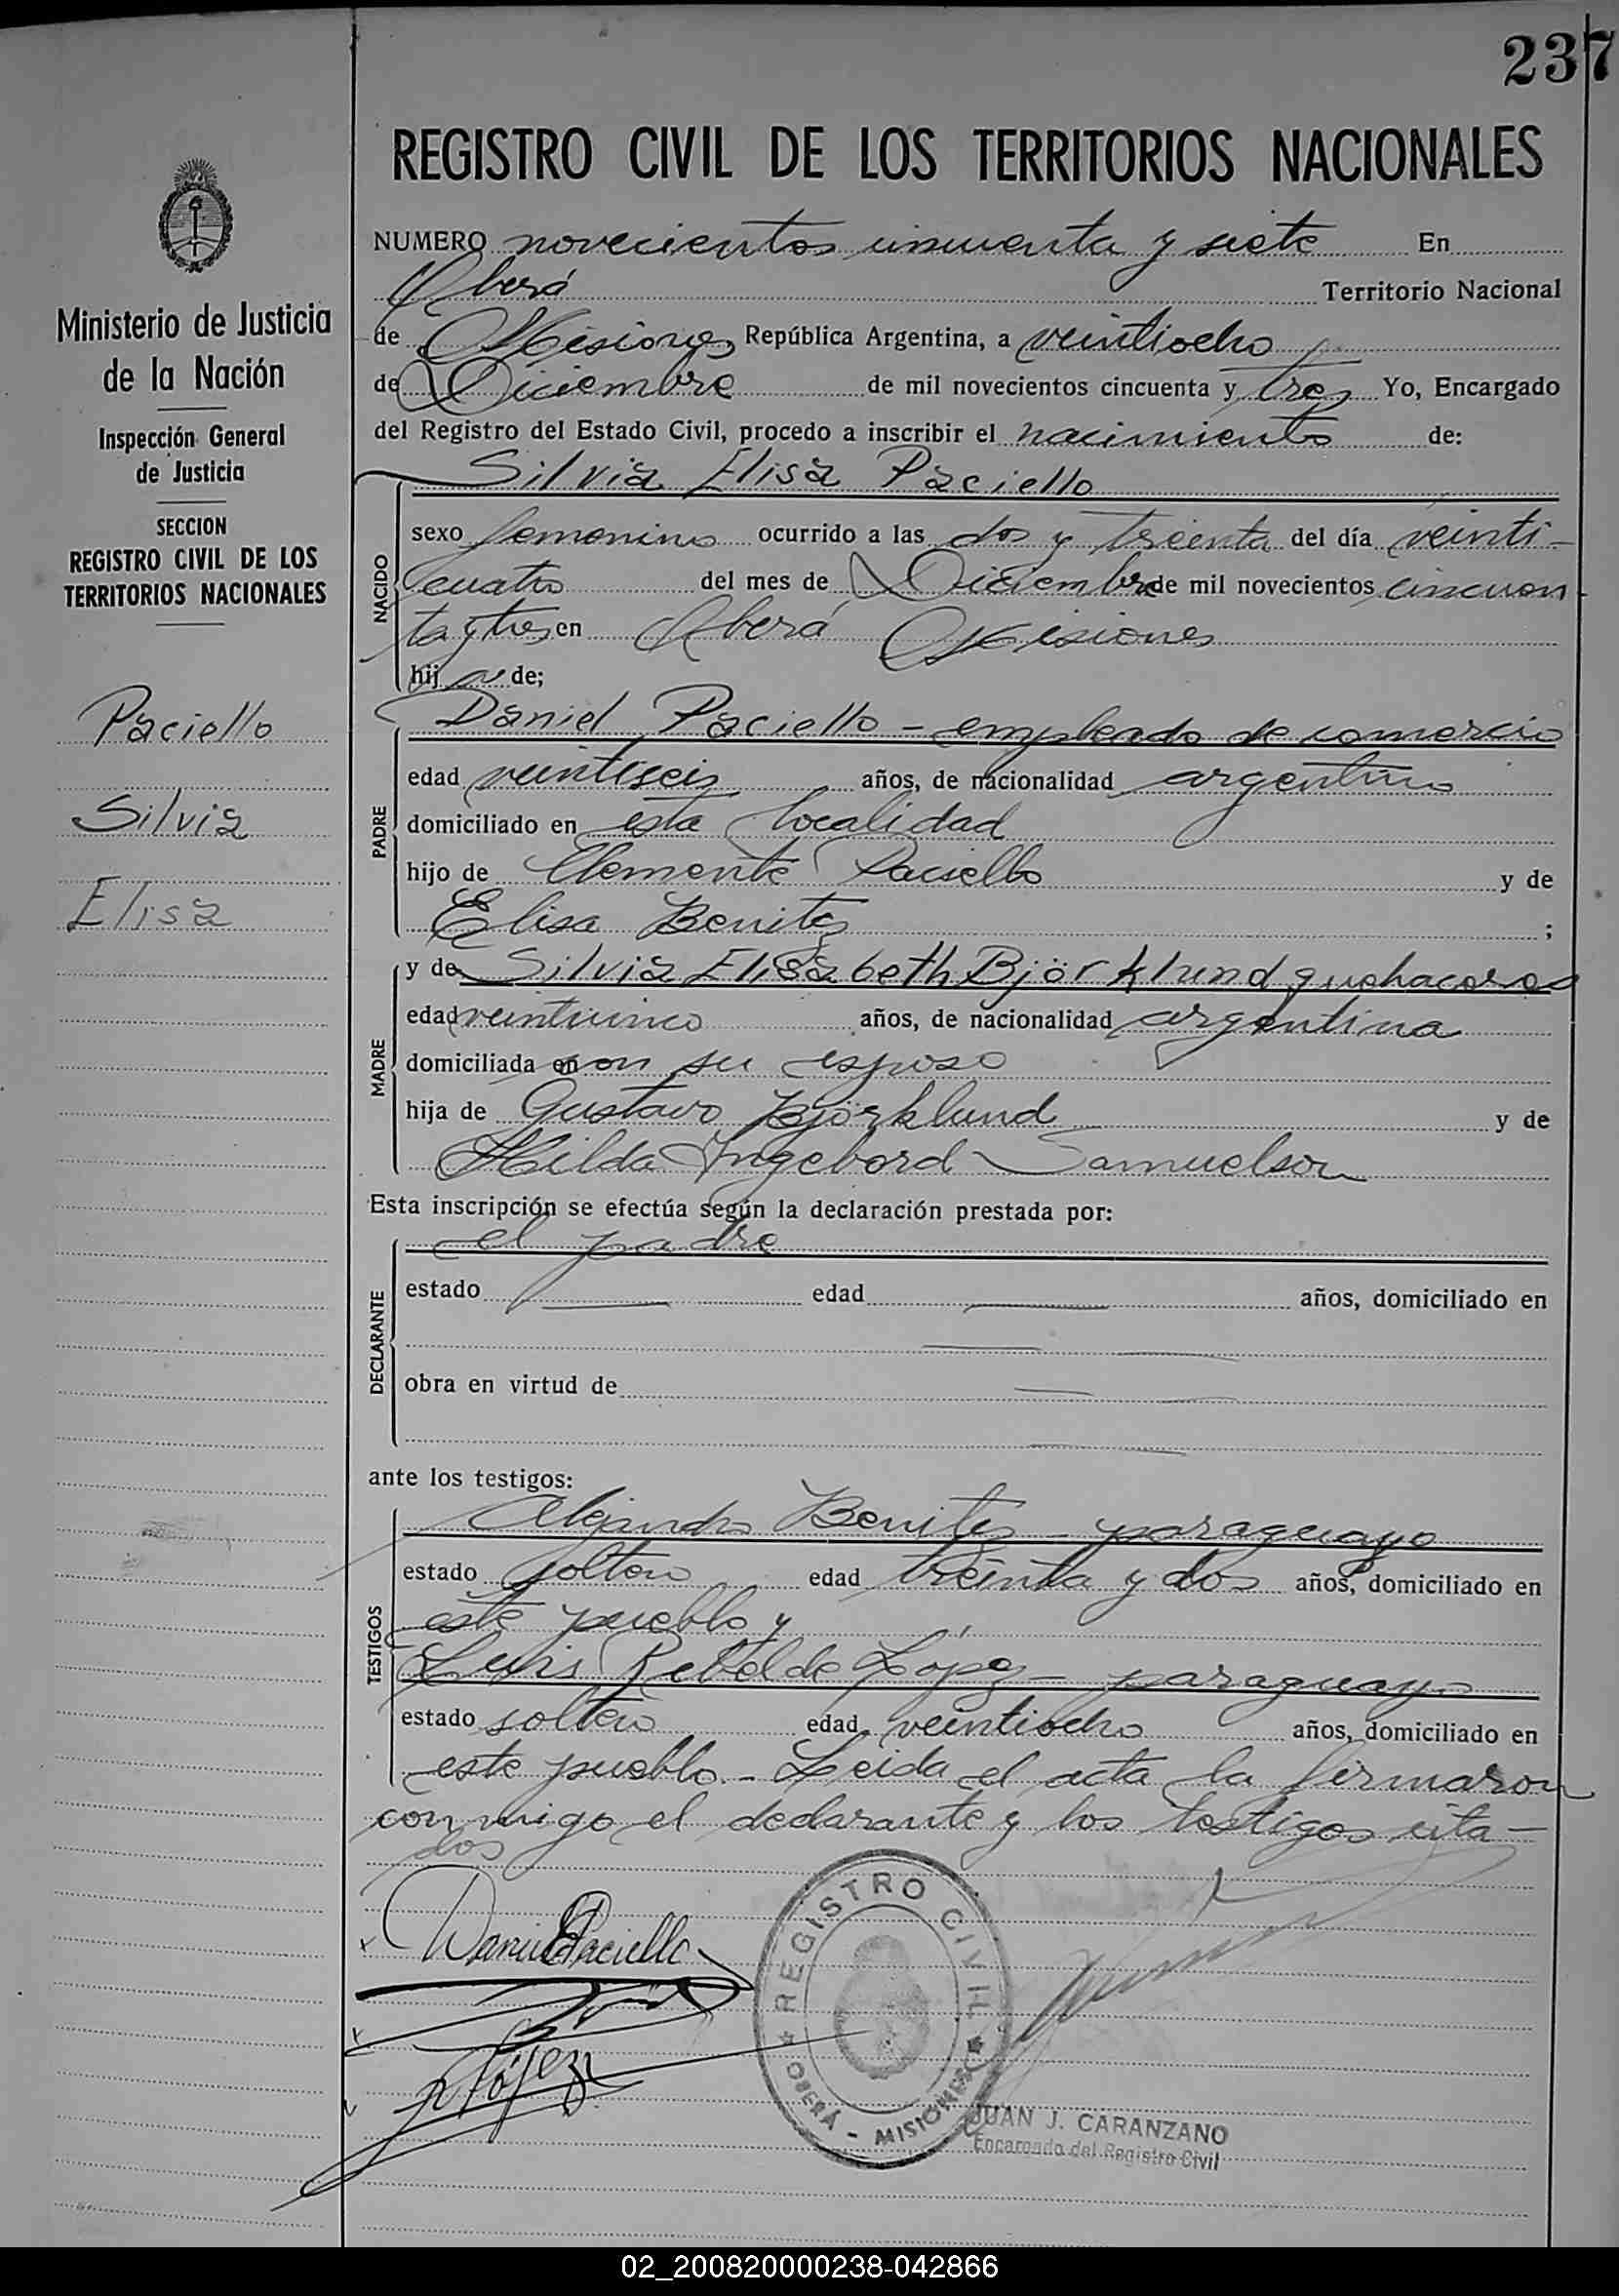 237
REGISTRO CIVIL DE LOS TERRITORIOS NACIONALES
Ministerio de Justicia
de la Nación
Inspección General
de Justicia
SECCION
REGISTRO CIVIL DE LOS
TERRITORIOS NACIONALES
Paciello
Silvia
Elisa
NUMERO novecientos cincuenta y siete En
Oberá Territorio Nacional
de Misiones República Argentina, a veintiocho
de Diciembre de mil novecientos cincuenta y tres Yo, Encargado
del Registro del Estado Civil, procedo a inscribir el nacimiento de:
Silvia Elisa Paciello
NACIDO
sexo femenino ocurrido a las dos y treinta del día veinti-
cuatro del mes de Diciembre de mil novecientos cincuen-
ta y tres en Oberá Misiones
hija de;
PADRE
Daniel Paciello - empleado de comercio
edad veintiseis años, de nacionalidad argentino
domiciliado en esta localidad
hijo de Clemente Paciello y de
Elisa Benitez ;
MADRE
y de Silvia Elisabeth Björklund quehaceres
edad veinticinco años, de nacionalidad argentina
domiciliada en con su esposo
hija de Gustavo Björklund y de
Hilda Ingebord Samuelson
Esta inscripción se efectúa según la declaración prestada por:
DECLARANTE
el padre
estado edad años, domiciliado en
obra en virtud de
ante los testigos:
TESTIGOS
Alejandro Benitez - paraguayo
estado soltero edad treinta y dos años, domiciliado en
este pueblo y
Luis Rebelde López - paraguayo
estado soltero edad veintiocho años, domiciliado en
este pueblo. - Leida el acta la firmaron
conmigo el declarante y los testigos cita-
dos
Daniel Paciello
López
REGISTRO CIVIL
OBERÁ - MISIONES
JUAN J. CARANZANO
Encargado del Registro Civil
02_200820000238-042866